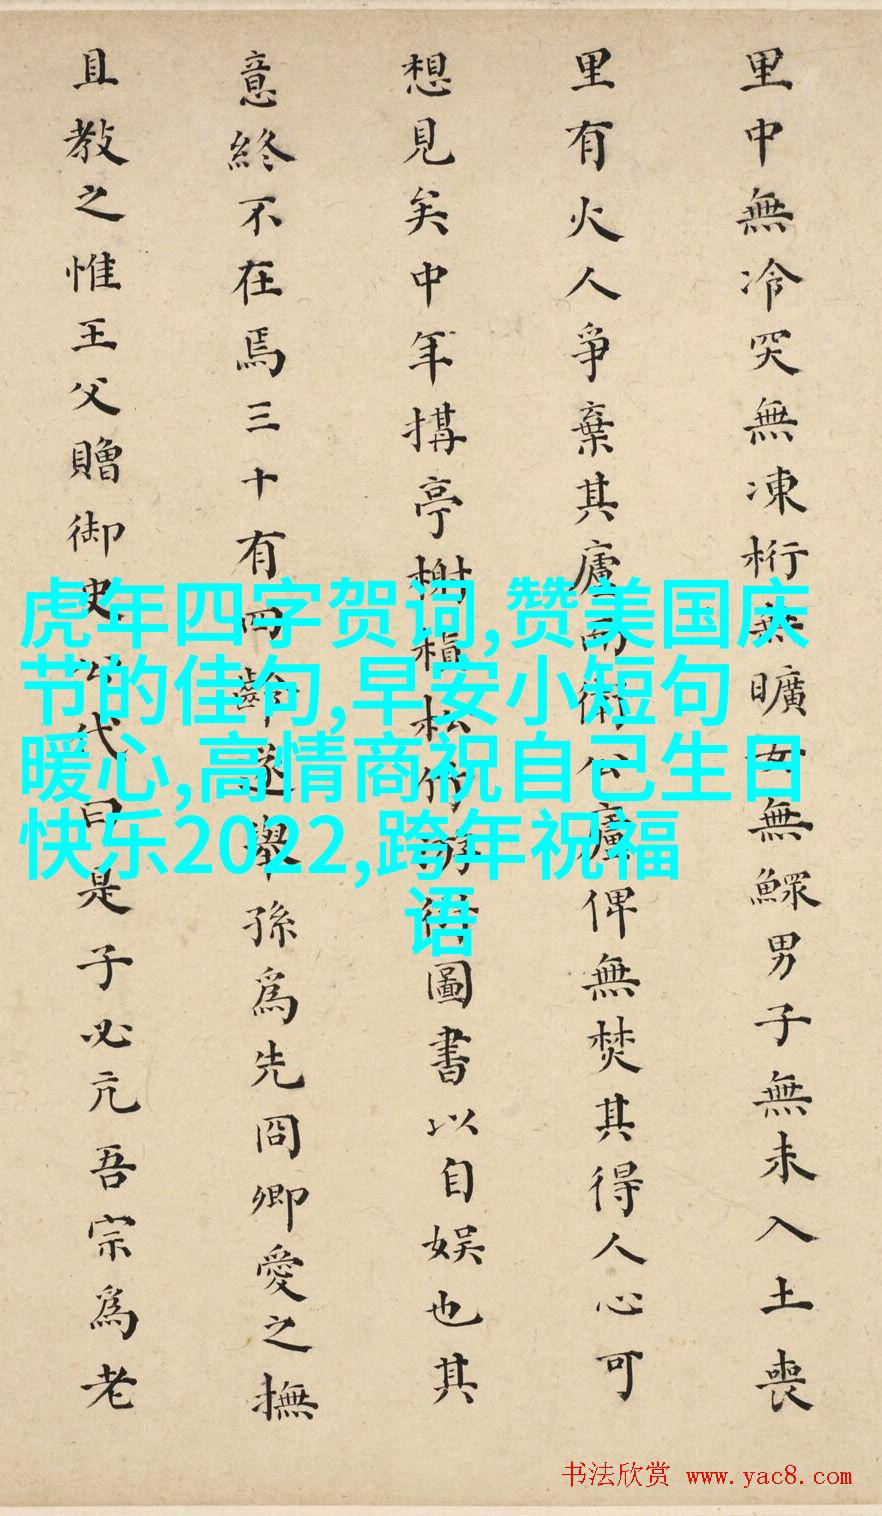 里中無冷突無凍桁無曠女無鰥男子無未入土喪
里有火人爭棄其廬而術公廬俾無焚其得人心可
想見矣中年搆亭榭植松竹游圖書以自娱也其
意終不在焉三十有四齡遂舉孫爲先冏卿愛之撫
且教之惟王父贈御史公代曰是子必亢吾宗爲老
虎年四字贺词,赞美国庆
节的佳句,早安小短句
暖心,高情商祝自己生日
快乐2022,跨年祝福
语
书法欣赏 www.yac8.com